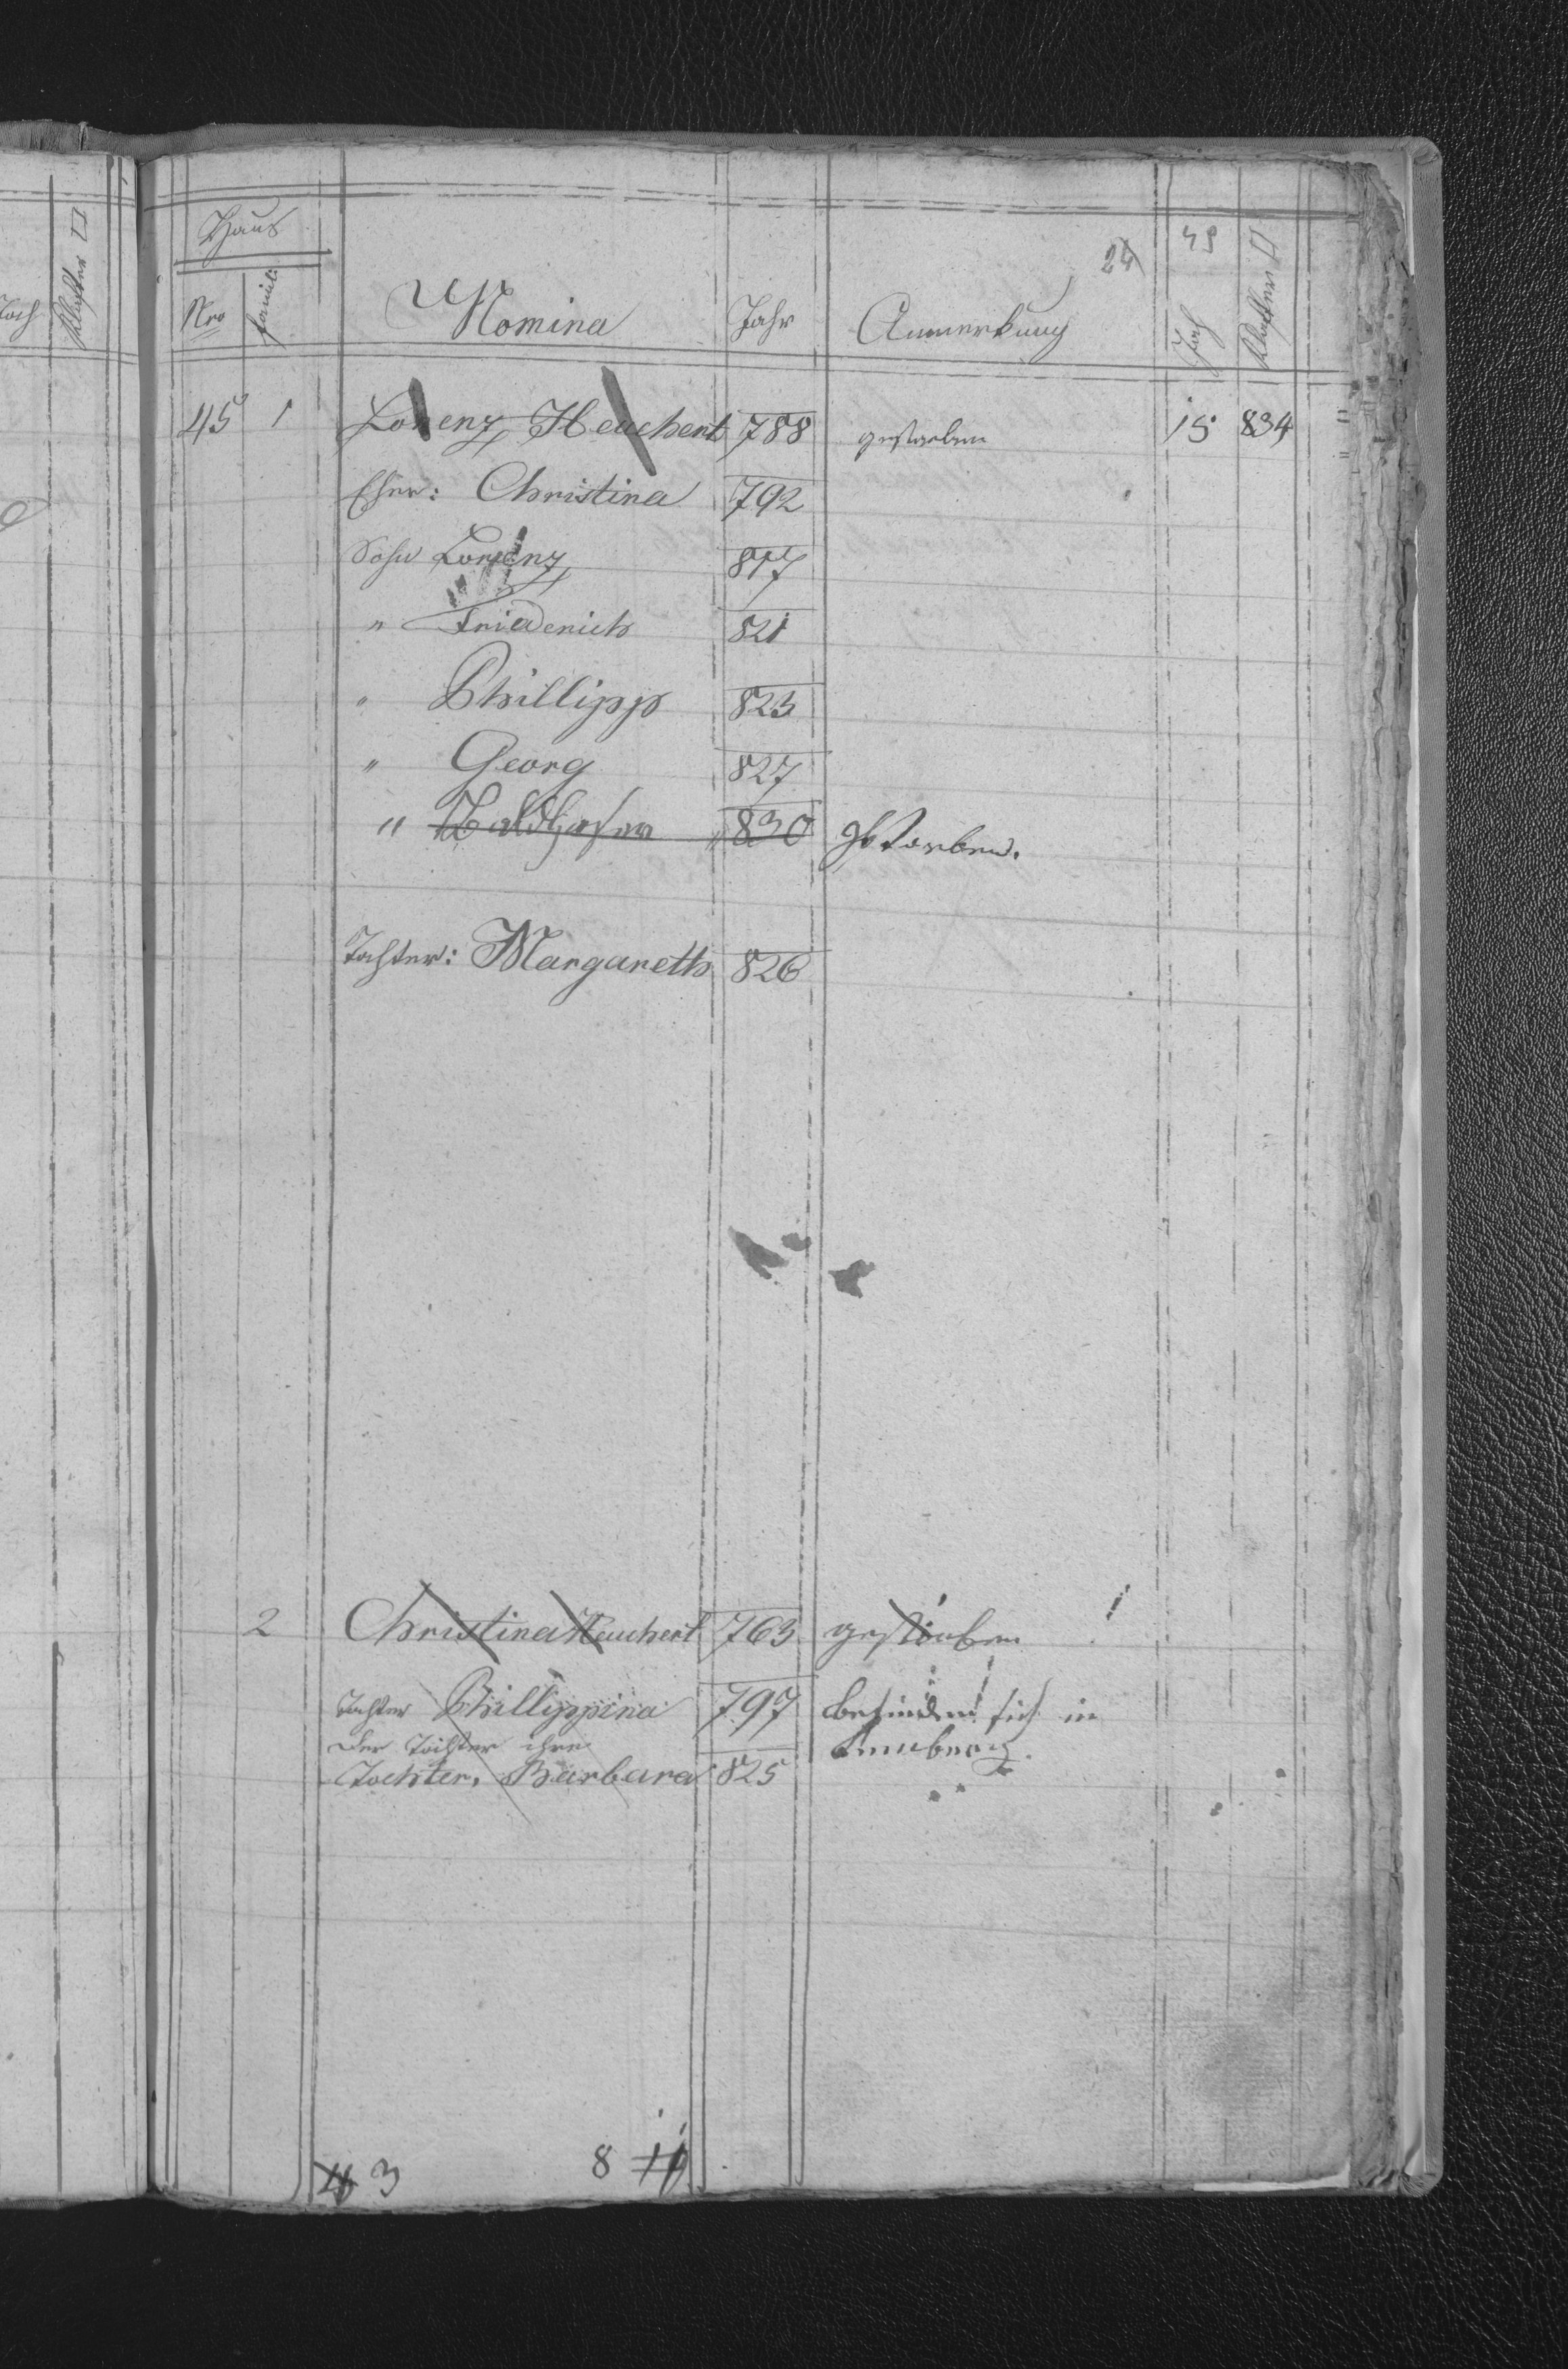 Joch Klafter □
Haus
24 45
Nro Famile Nomina Jahr Anmerkung Joch Klafter □
45 1 Lorenz Heuchert 788 gestorben 15 834
Ehew: Christina 792
Sohn Lorenz 817
" Friederich 821
" Phillipp 823
" Georg 827
" Baldhasar 830 gestorben.
Tochter: Margareth 826
2 Christina Heuchert 763 gestorben
Tochter Phillippina 797 befinden sich in
der Tochter ihre Lemberg.
Tochter, Barbara 825
3 8 11